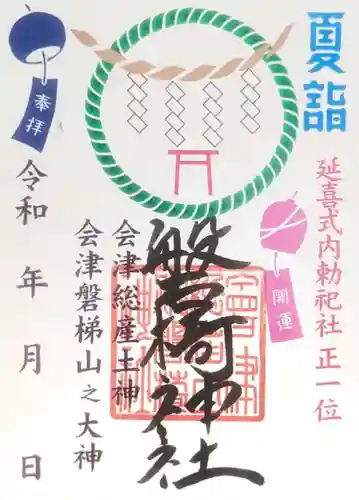 夏詣
延喜式内勅祀社 正一位
開運
磐梯神社
会津総産土神
会津磐梯山之大神
奉拝
令和 年 月 日